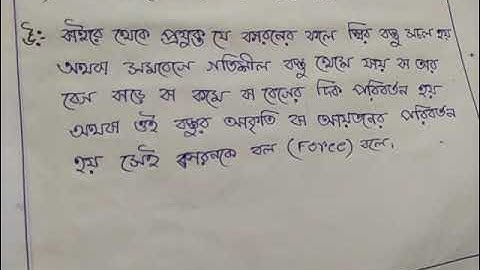 উঃ বাইরে থেকে প্রযুক্ত যে কারনের ফলে স্থির বস্তু সচল হয়
অথবা সমবেগে গতিশীল বস্তু থেমে যায় বা তার
বেগ বাড়ে বা কমে বা বেগের দিক পরিবর্তন হয়
অথবা ওই বস্তুর আকৃতি বা আয়তনের পরিবর্তন
হয় সেই কারনকে বল (Force) বলে।